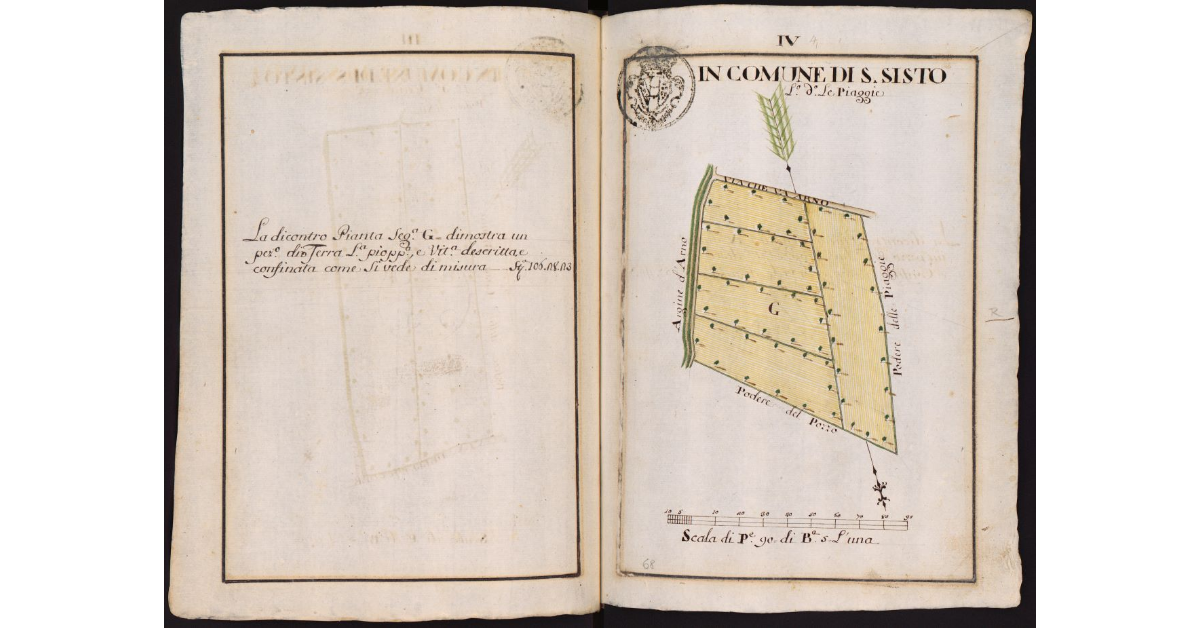 La dicontro Pianta Seg.ª G. dimostra un
pez.º di Terra L.ª piopp.ª e Vit.ª descritta, e
confinata come Si vede di misura
IV
4
IN COMUNE DI S. SISTO
L.º d.º Le Piaggie
VIA CHE VA ARNO
Argine d'Arno
G
Podere delle Piaggie
Podere del Pozzo
2
10 5 10 40 50 40 50 60 70 80 90
Scala di P.e 90 di B.a 5 L'una
68